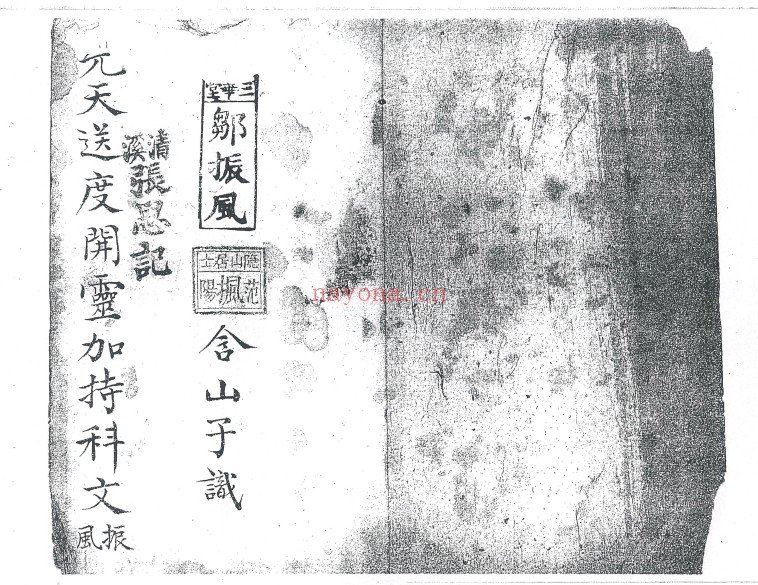 三華堂
鄒振風
山居士
范陽
含山子識
清溪
張恩記
元天送度開靈加持科文
振風
nayona.cn